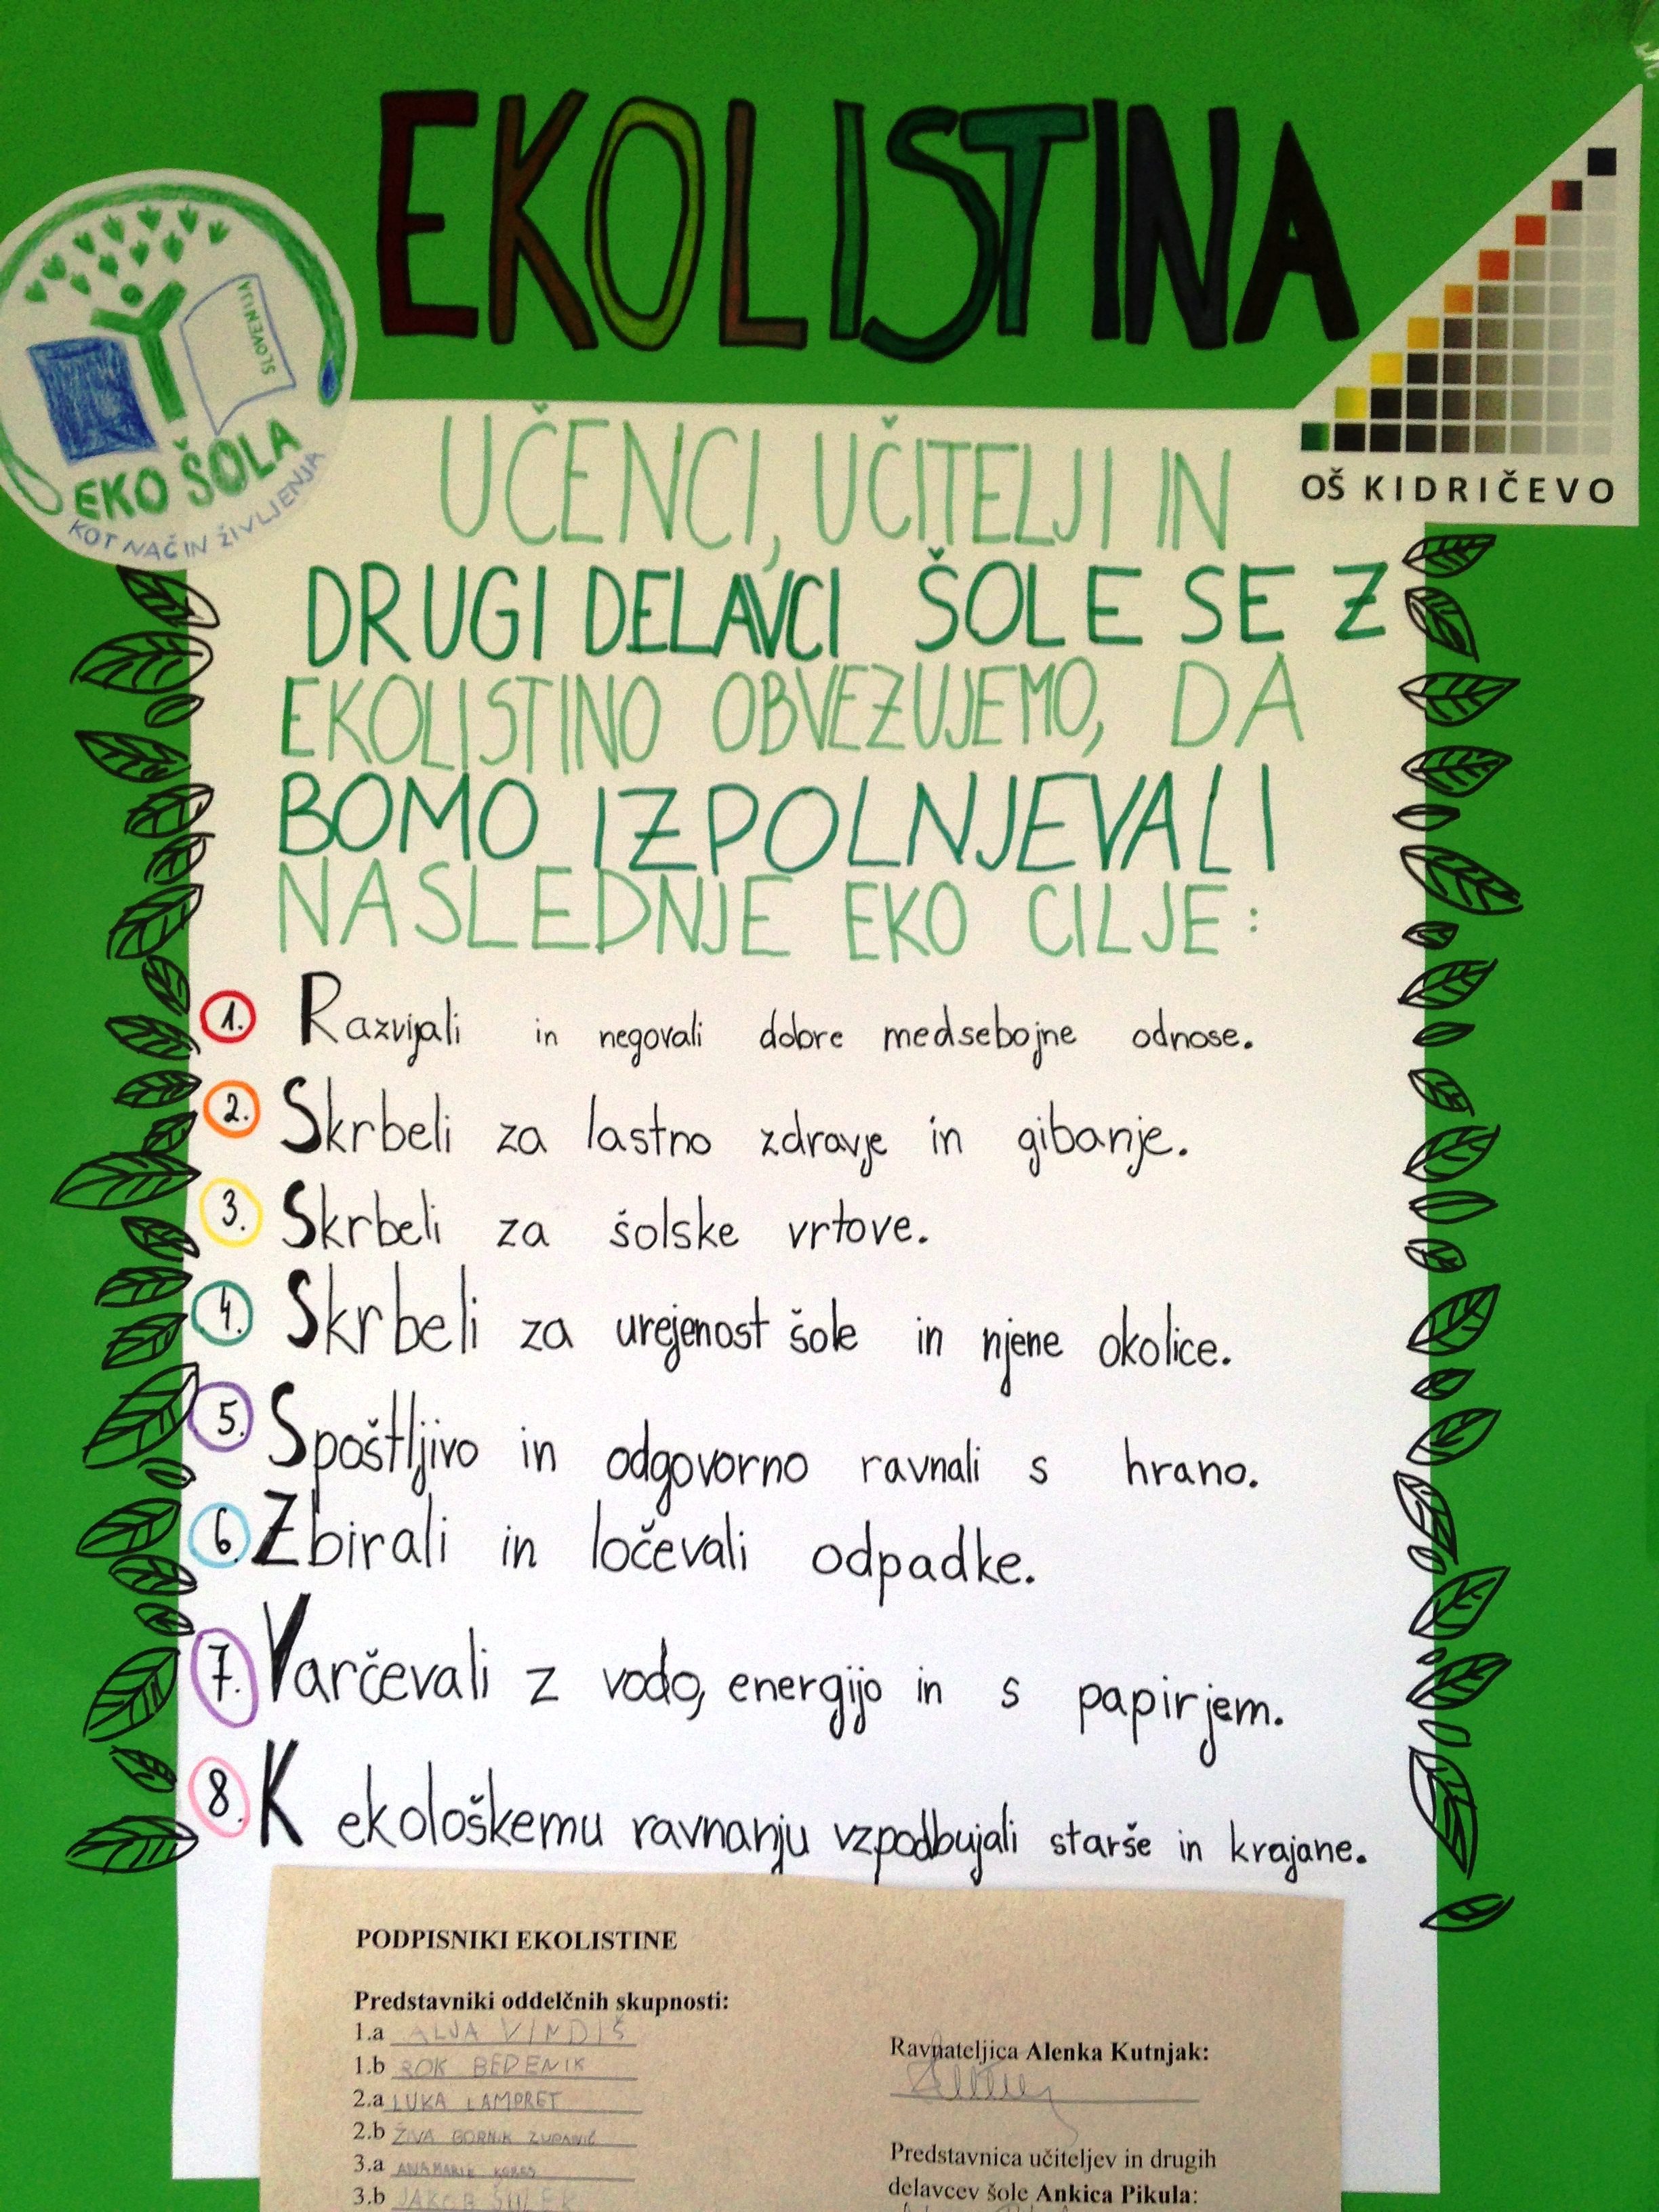 EKOLISTINA
SLOVENIJA
EKO ŠOLA
KOT NAČIN ŽIVLJENJA
OŠ KIDRIČEVO
UČENCI, UČITELJI IN
DRUGI DELAVCI ŠOLE SE Z
EKOLISTINO OBVEZUJEMO, DA
BOMO IZPOLNJEVALI
NASLEDNJE EKO CILJE:
1. Razvijali in negovali dobre medsebojne odnose.
2. Skrbeli za lastno zdravje in gibanje.
3. Skrbeli za šolske vrtove.
4. Skrbeli za urejenost šole in njene okolice.
5. Spoštljivo in odgovorno ravnali s hrano.
6. Zbirali in ločevali odpadke.
7. Varčevali z vodo, energijo in s papirjem.
8. K ekološkemu ravnanju vzpodbujali starše in krajane.
PODPISNIKI EKOLISTINE
Predstavniki oddelčnih skupnosti:
1.a ALJA VINDIŠ
1.b ROK BEDENIK
2.a LUKA LAMPRET
2.b ŽIVA GORNIK
3.a
3.b JAKOB
Ravnateljica Alenka Kutnjak:
Predstavnica učiteljev in drugih
delavcev šole Ankica Pikula: